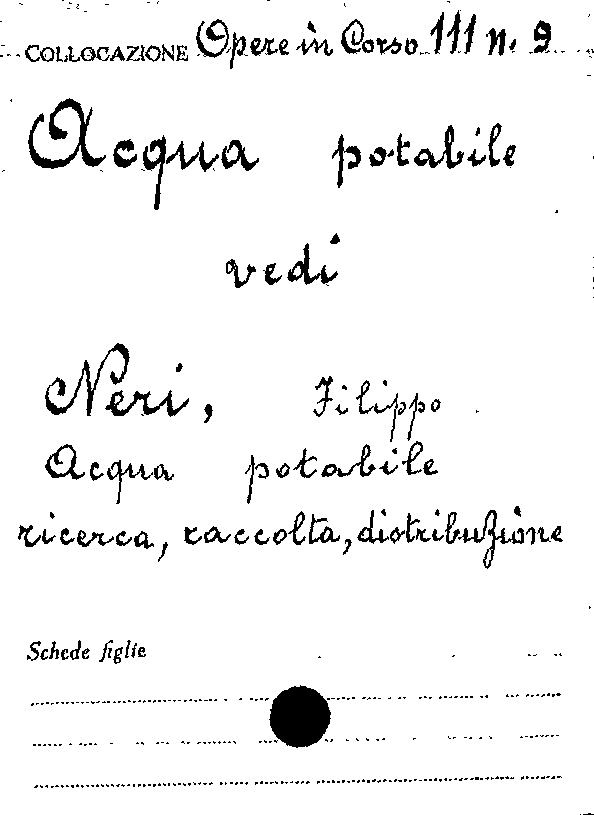 COLLOCAZIONE Opere in Corso 111 n. 9
Acqua potabile
vedi
Neri, Filippo
Acqua potabile
ricerca, raccolta, distribuzione
Schede figlie